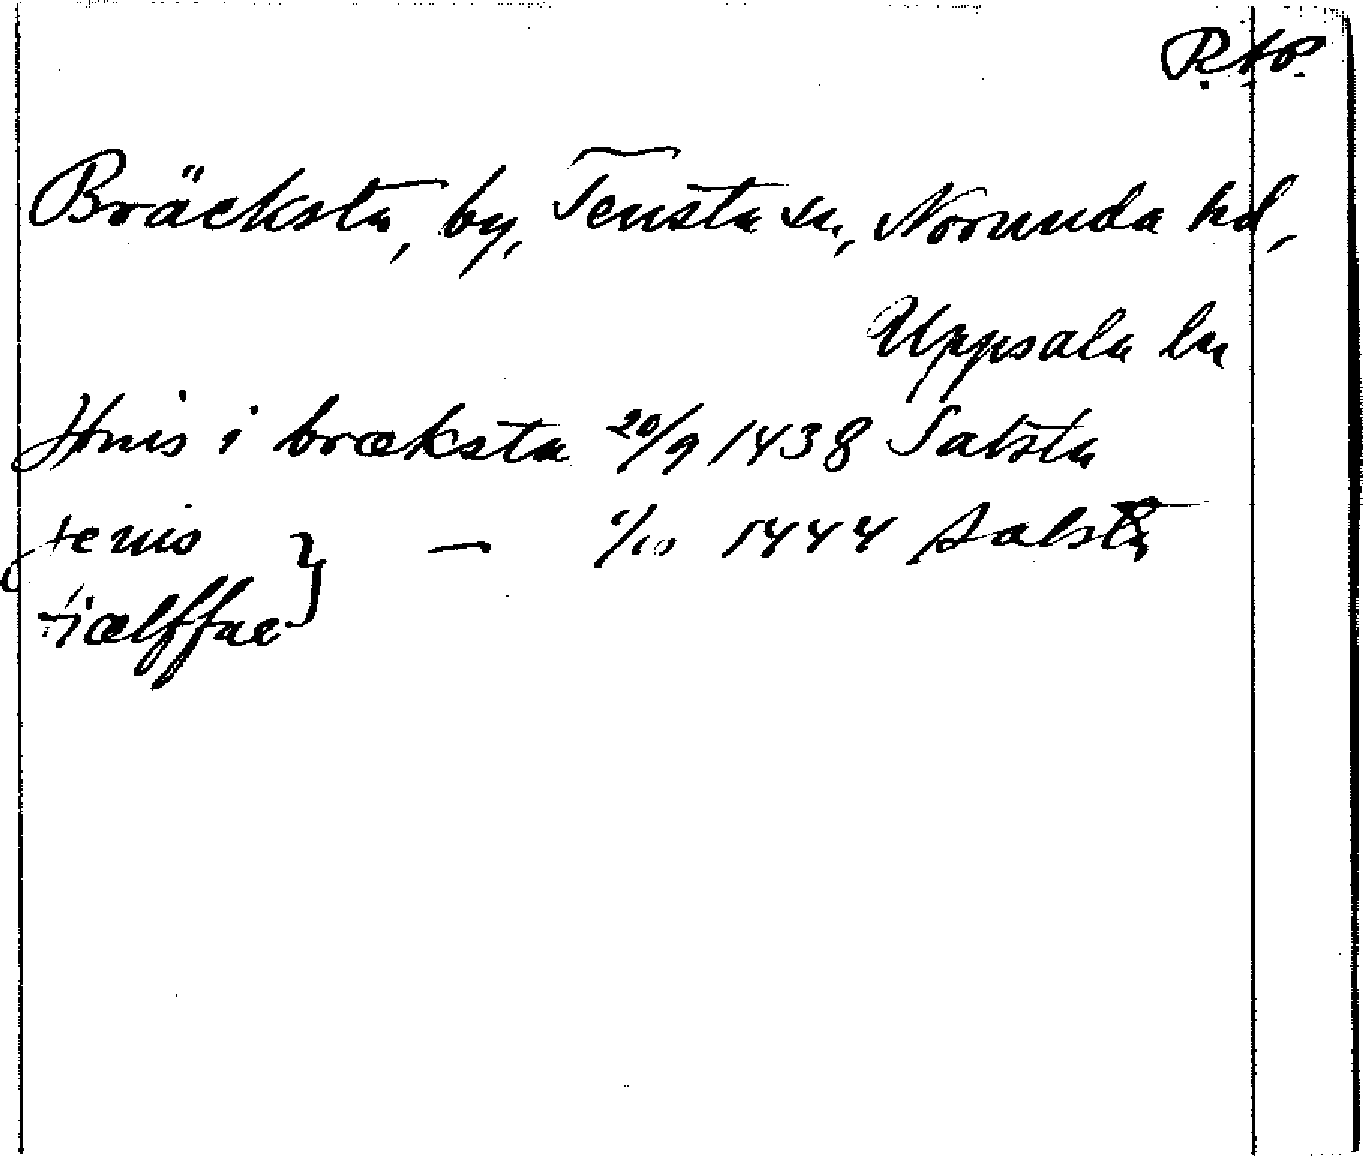 RAP.
Bräcksta, by, Tensta sn, Norunda hd,
Uppsala ln
Jönis i bræksta 20/9 1438 Salsta
jenis } — 1/10 1444 Salsta
tiælffae